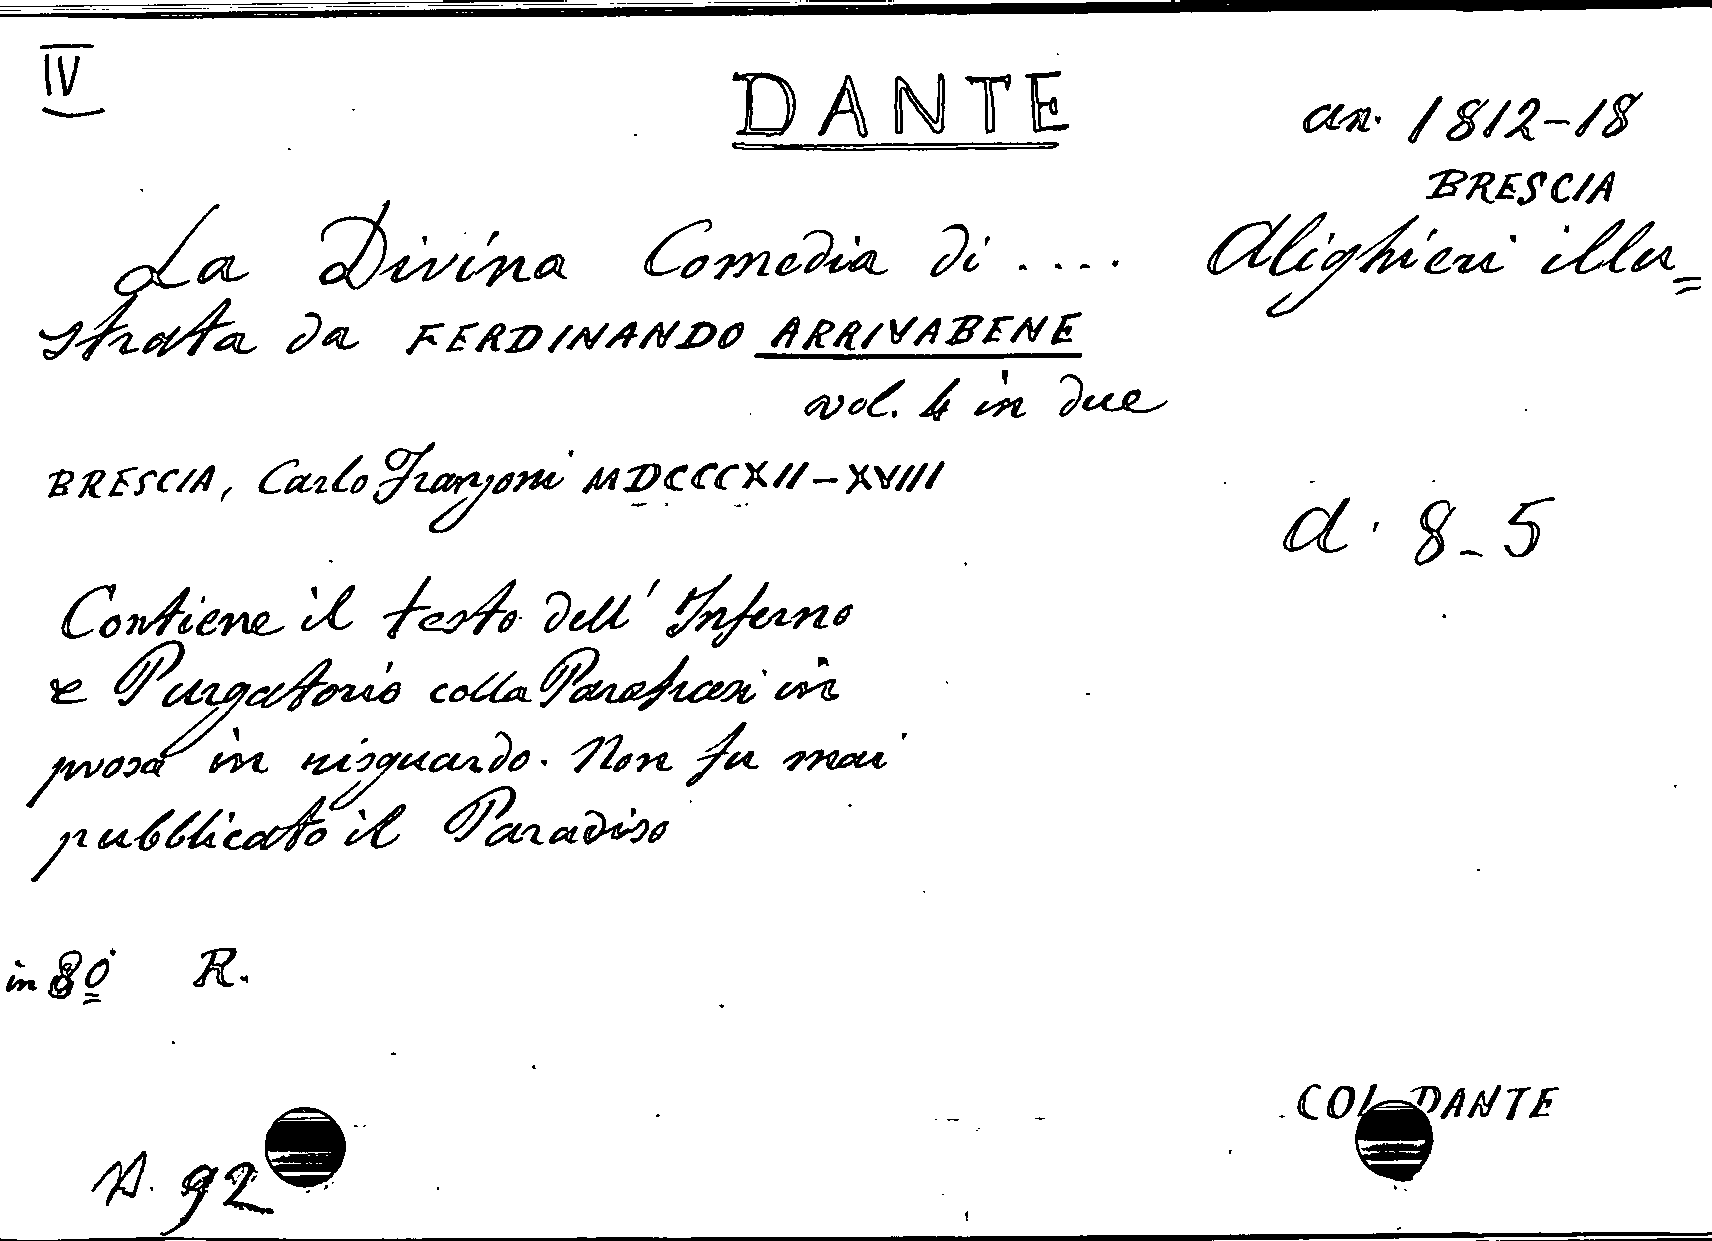 IV
DANTE
an. 1812-18
BRESCIA
La Divina Comedia di .... Alighieri illu=
strata da FERDINANDO ARRIVABENE
vol. 4 in due
BRESCIA, Carlo Franzoni MDCCCXII-XVIII
d. 8-5
Contiene il testo dell' Inferno
e Purgatorio colla Parafrasi in
prosa in risguardo. Non fu mai
pubblicato il Paradiso
in 8º R.
COL DANTE
N. 92